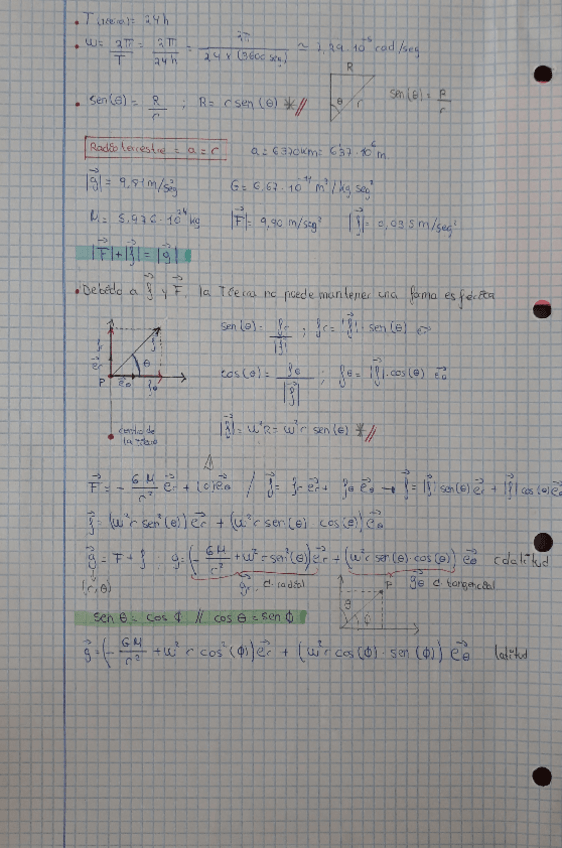 • T (tierra) = 24h
• ω = 2π/T = 2π/24h = 2π/24×(3600seg) ≃ 7,29·10⁻⁵ rad/seg
R
θ r
sen(θ) = R/r
• sen(θ) = R/r ; R = r sen(θ) * //
Radio terrestre = a = r a = 6370km = 6'37·10⁶ m
|g⃗| = 9,81 m/seg² G = 6,67·10⁻¹¹ m³/kg seg²
M = 5,976·10²⁴ kg |F⃗| = 9,90 m/seg² |f⃗| = 0,035 m/seg²
|F⃗| + |f⃗| = |g⃗|
• Debido a f⃗ y F⃗, la Tierra no puede mantener una forma esférica
sen(θ) = fr/|f⃗| ; fr = |f⃗|·sen(θ) e⃗r
fr f⃗ θ
e⃗r
P e⃗θ fθ
cos(θ) = fθ/|f⃗| ; fθ = |f⃗|·cos(θ) e⃗θ
centro de la tierra
|f⃗| = ω²R = ω² r sen(θ) * //
F⃗ = - GM/r² e⃗r + (0) e⃗θ / f⃗ = fr e⃗r + fθ e⃗θ → f⃗ = |f⃗| sen(θ) e⃗r + |f⃗| cos(θ) e⃗θ
f⃗ = (ω² r sen²(θ)) e⃗r + (ω² r sen(θ) cos(θ)) e⃗θ
g⃗ = F + f ; g = (- GM/r² + ω² r sen²(θ)) e⃗r + (ω² r sen(θ)·cos(θ)) e⃗θ colatitud
(r, θ) gr c. radial gθ c. tangencial
P
θ
ϕ
sen θ = cos ϕ // cos θ = sen ϕ
g⃗ = (- GM/r² + ω² r cos²(ϕ)) e⃗r + (ω² r cos(ϕ)·sen(ϕ)) e⃗θ latitud